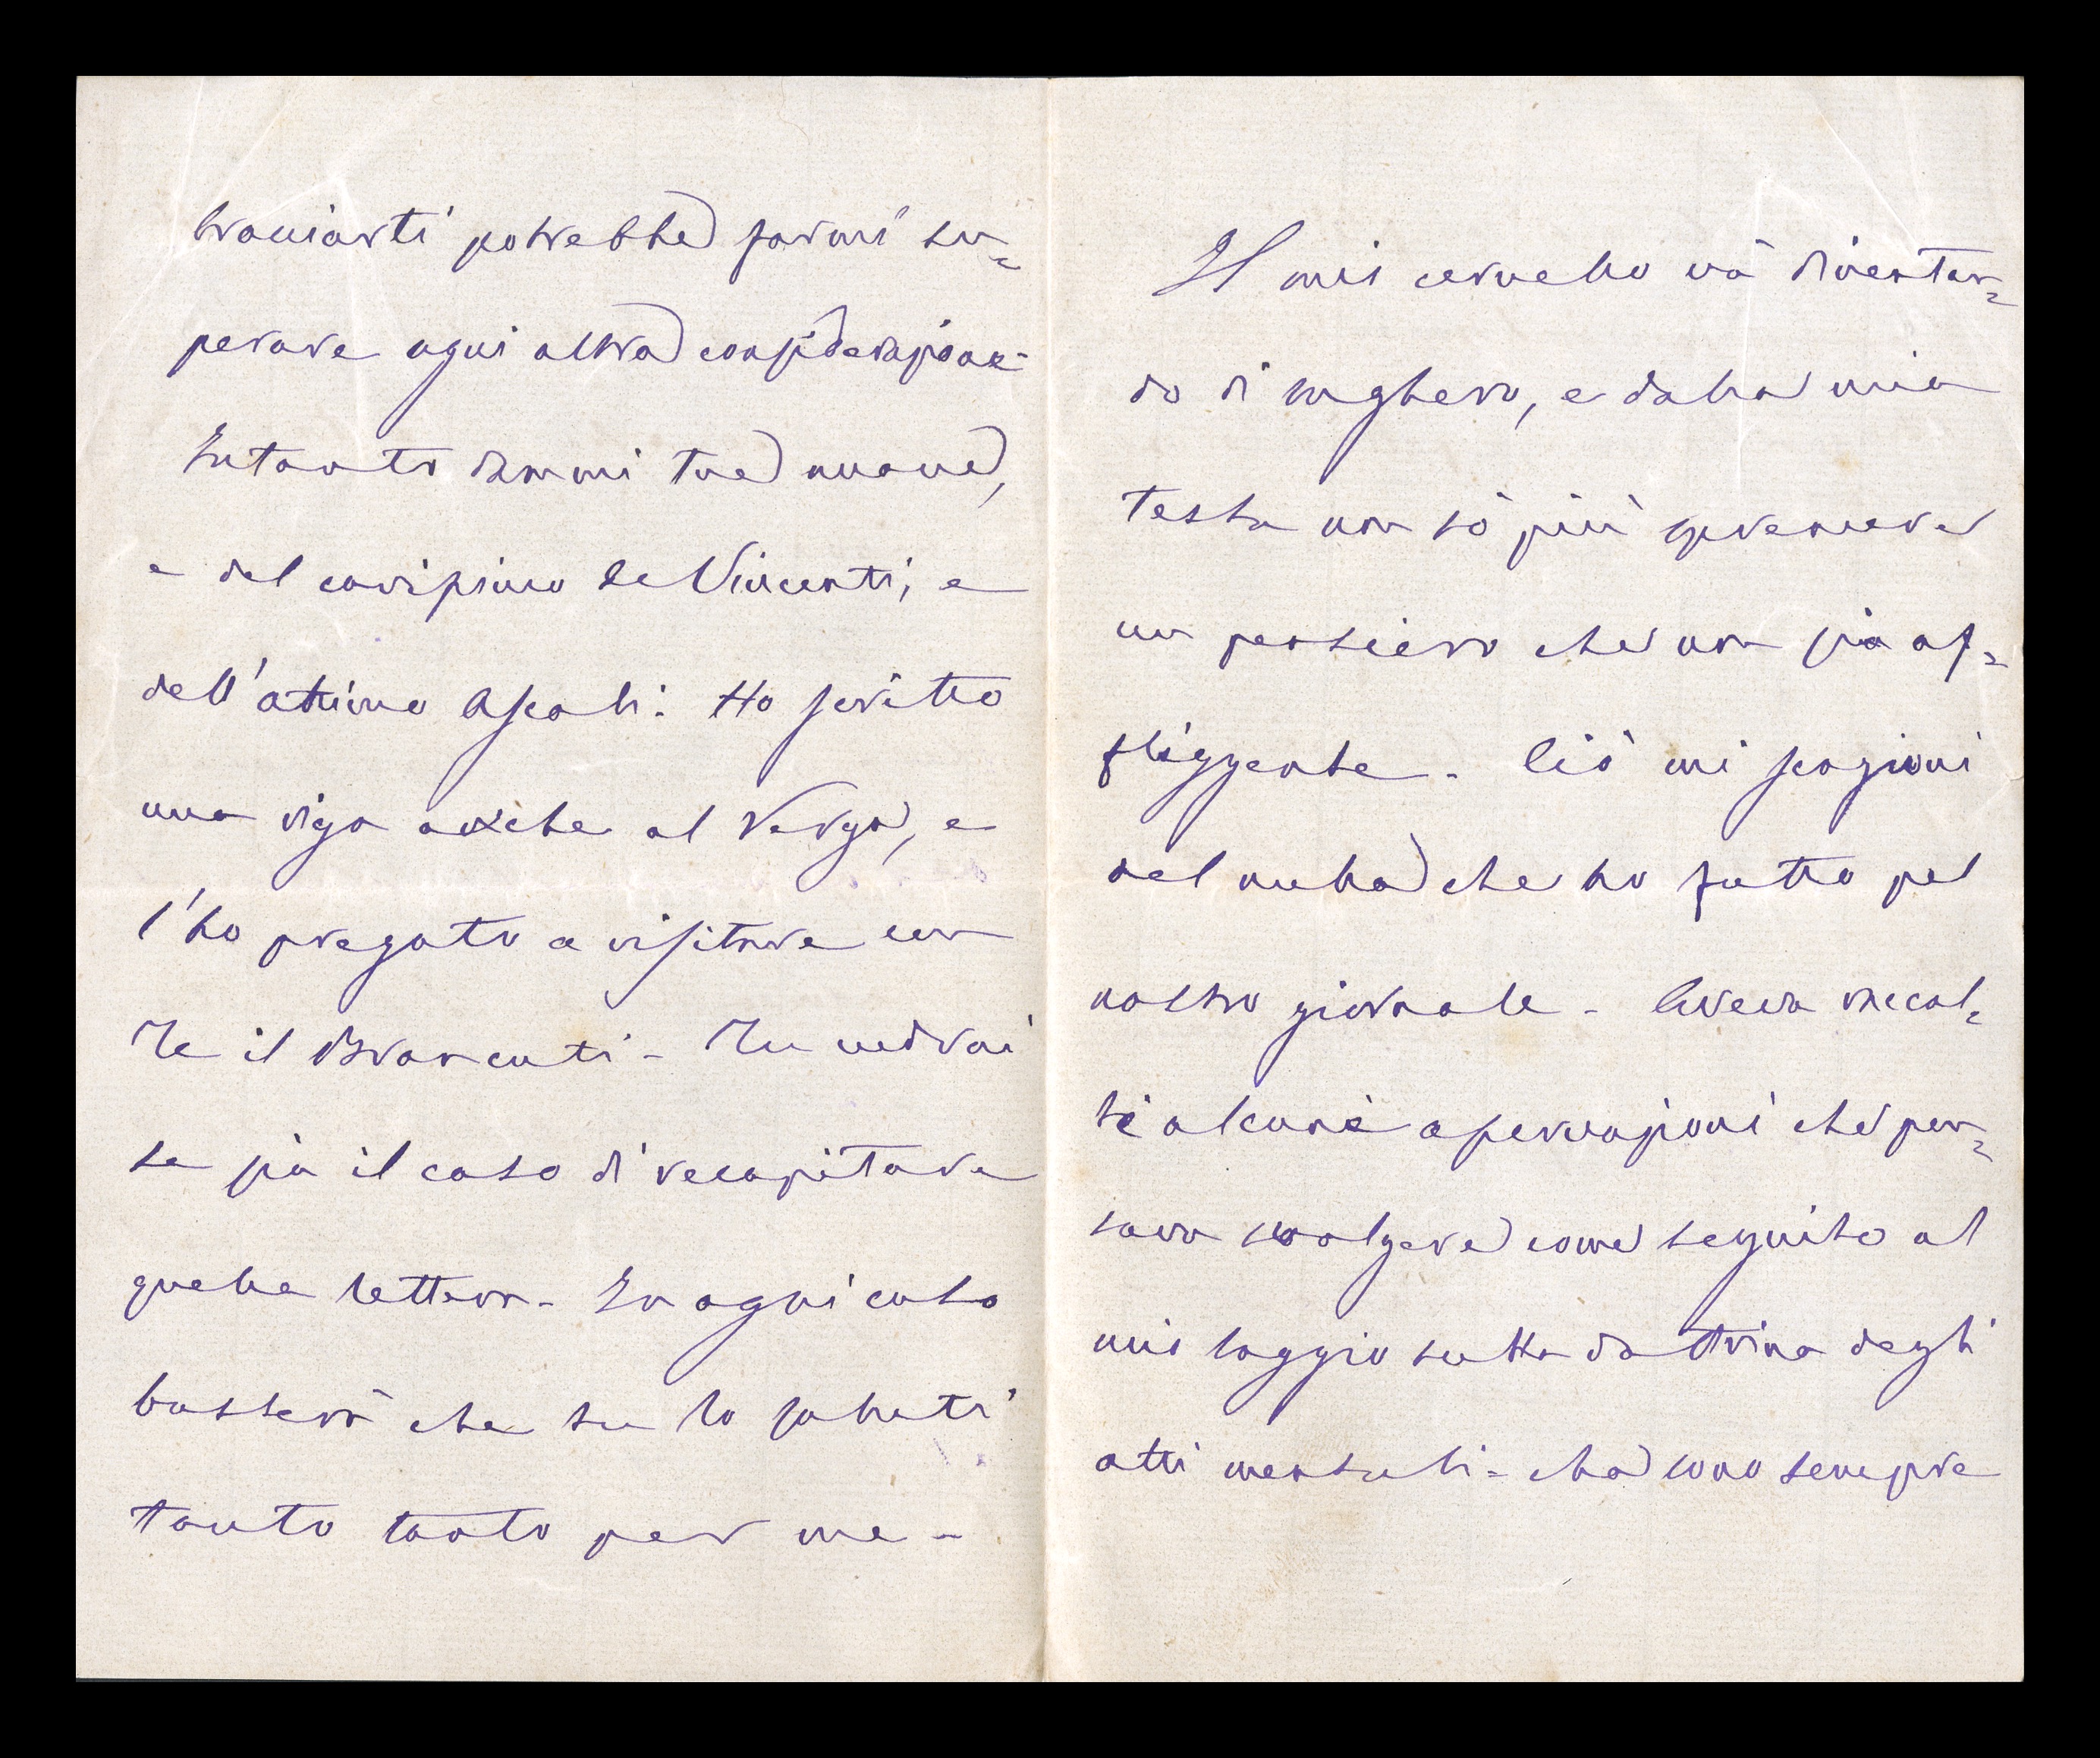 bracciarti potrebbe farmi su=
perare ogni altra considerazione-
Intanto dammi tue nuove,
e del carissimo de Vincenti, e
dell'ottimo Ascoli. Ho scritto
una riga anche al Verga, e
l'ho pregato a visitare con
Te il Brancuti - Tu vedrai
se sia il caso di recapitare
quella lettera - In ogni caso
basterà che tu lo saluti
tanto tanto per me -
Il mio cervello và diventan=
do di sughero, e dalla mia
testa non sò più spremere
un pensiero che non sia af=
fliggente - Ciò mi scagioni
del nulla che ho fatto pel
nostro giornale - Aveva raccol=
te alcune osservazioni che pen=
sava svolgere come seguito al
mio saggio sulla dottrina degli
atti mentali - che sono sempre